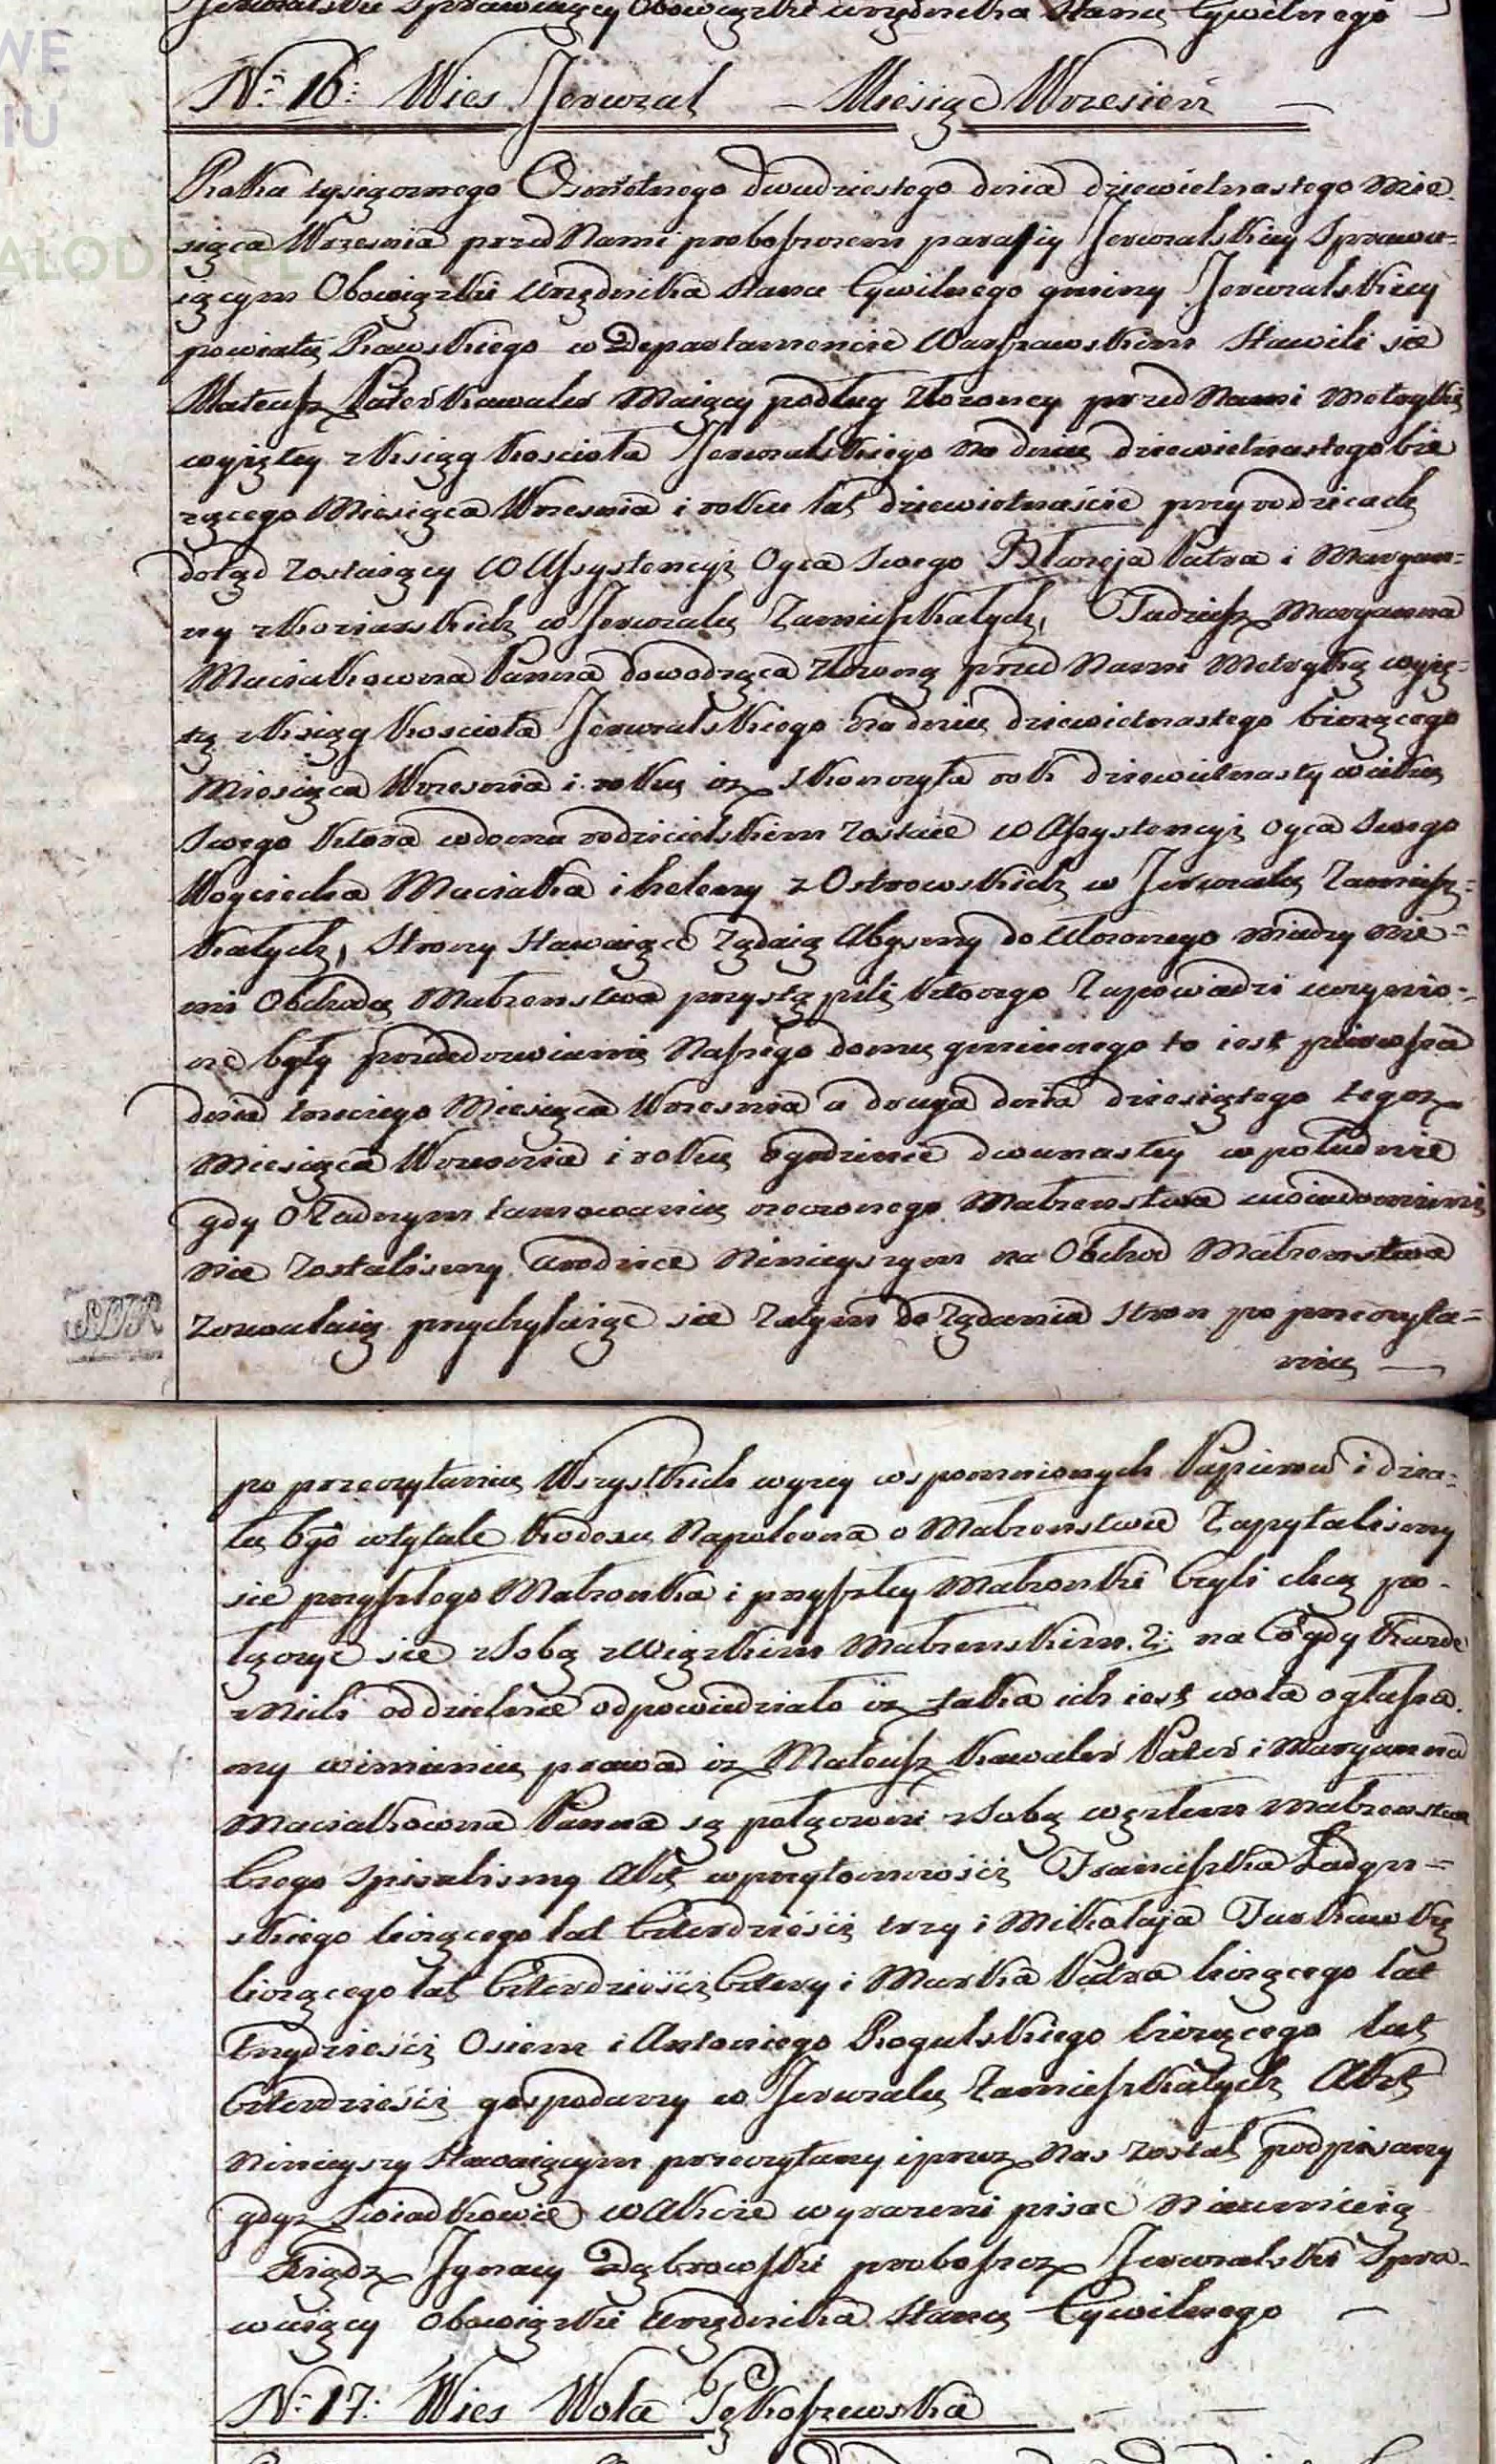 Jerwalski Sprawuiący Obowiązki urzędnika Stanu Cywilnego
N: 16: Wies Jerwzal – Miesiąc Wrzesień –
Roku tysiącznego Osmsetnego dwudziestego dnia dziewietnastego Mie-
siąca Wrzesnia przed Nami proboszczem parafiy Jerwalskiey Sprawu=
iącym Obowiązki urzędnika stanu Cywilnego gminy Jerwalskiey
powiatu Rawskiego w Departamencie Warszawskim stawili sie
Mateusz Puter Kawaler Maiący podług złożoney przed Nami Metryki
wyiętey z ksiąg kosciola Jerwalskiego na dniu dziewietnastego bie
zącego Miesiąca Wrzesnia i roku lat dziewietnaście przy rodzicach
dotąd zostaiący w Assystencyi Oyca swego Błażeja Putra i Maryan=
ny z koziarskich w Jerwzalu zamieszkałych, Tudziesz Maryanna
Maciakowna Panna dowodząca złożoną przed Nami Metryką wyię=
tą z ksiąg kosciola Jerwalskiego na dniu dziewietnastego bieżącego
Miesiąca Wrzesnia i roku iż skonczyła rok dziewietnasty wieku
swego ktora w domu rodzicielskim zostaie w Assystencyi oyca swego
Woyciecha Maciaka i heleny z Ostrowskich w Jerwzalu zamiesz=
kałych, Strony stawaiące żądaią Abysmy do ułożonego miedzy nie=
mi Obchodu Małżenstwa przystąpili ktorego zapowiedzi uczynio=
ne były przededrzwiami Naszego domu gminnego to iest pierwsza
dnia trzeciego Miesiąca Wrzesnia a druga dnia dziesiątego tegoż
Miesiąca Wrzesnia i roku ogodzinie dwunastey w południe
gdy o żadnym tamowaniu rzeczonego Małżenstwa uwiadomieni
nie zostalismy a rodzice Ninieyszym na Obchod Małżenstwa
zezwalaią przychylaiąc sie zatym do żądania stron po przeczyta=
niu –
po przeczytaniu Wszystkich wyżey wspomnionych Papierow i dzia=
łu 6go w tytule kodexu Napoleona o Małżenstwie zapytalismy
sie przyszłego Małżonka i przyszłey Małżonki Czyli chcą po-
łączyć sie z sobą związkiem Małżenskim na Co gdy każde
z Nich oddzielnie odpowiedziało iż taka ich iest wola ogłasza.
my w imieniu prawa iż Mateusz kawaler Puter i Maryanna
Maciakowna Panna są połączoni z sobą węzłem Małżenstwa
Czego spisalismy Akt w przytomności Franciszka Ładyn=
skiego liczącego lat Czterdzieści trzy i Mikołaja
liczącego lat Czterdzieści Cztery i Marka Putra liczącego lat
trzydzieści Osiem i Antoniego Rogulskiego liczącego lat
Czterdzieści gospodarzy w Jerwzalu zamieszkałych Akt
Ninieyszy stawaiącym przeczytany i przez Nas został podpisany
gdyż swiadkowie w Akcie wyrażeni pisać Nie umieią
Xiądz Jgnacy Dąbrowski proboszcz Jerwalski Spra-
wuiący Obowiązki Urzędnika Stanu Cywilnego –
N: 17: Wies Wola Pękoszewska – –